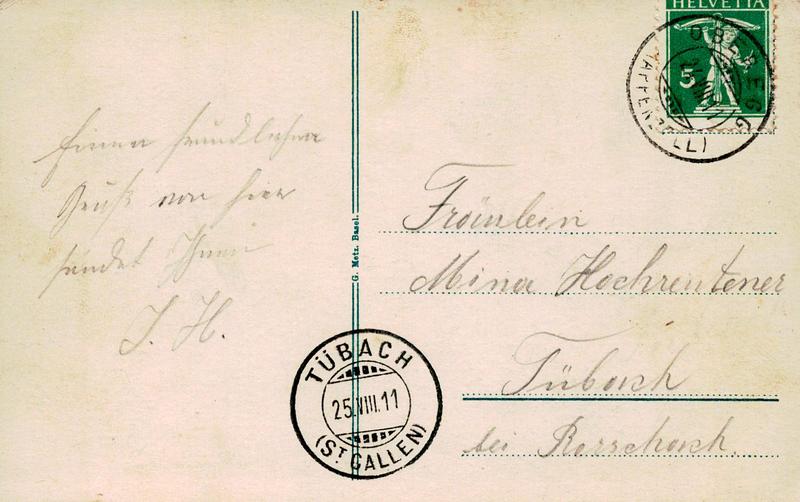 HELVETIA
5
OBEREGG
(APPENZELL)
Einen freundlichen
Gruß von hier
sendet Ihnen
J. H.
G. Metz. Basel.
Fräulein
Mina Hochreutener
Tübach
bei Rorschach.
TÜBACH
25.VIII.11
(ST GALLEN)